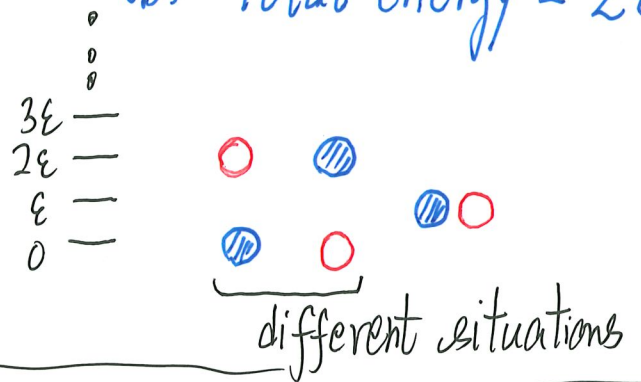 Total energy = 2
3ε
2ε
ε
0
different situations